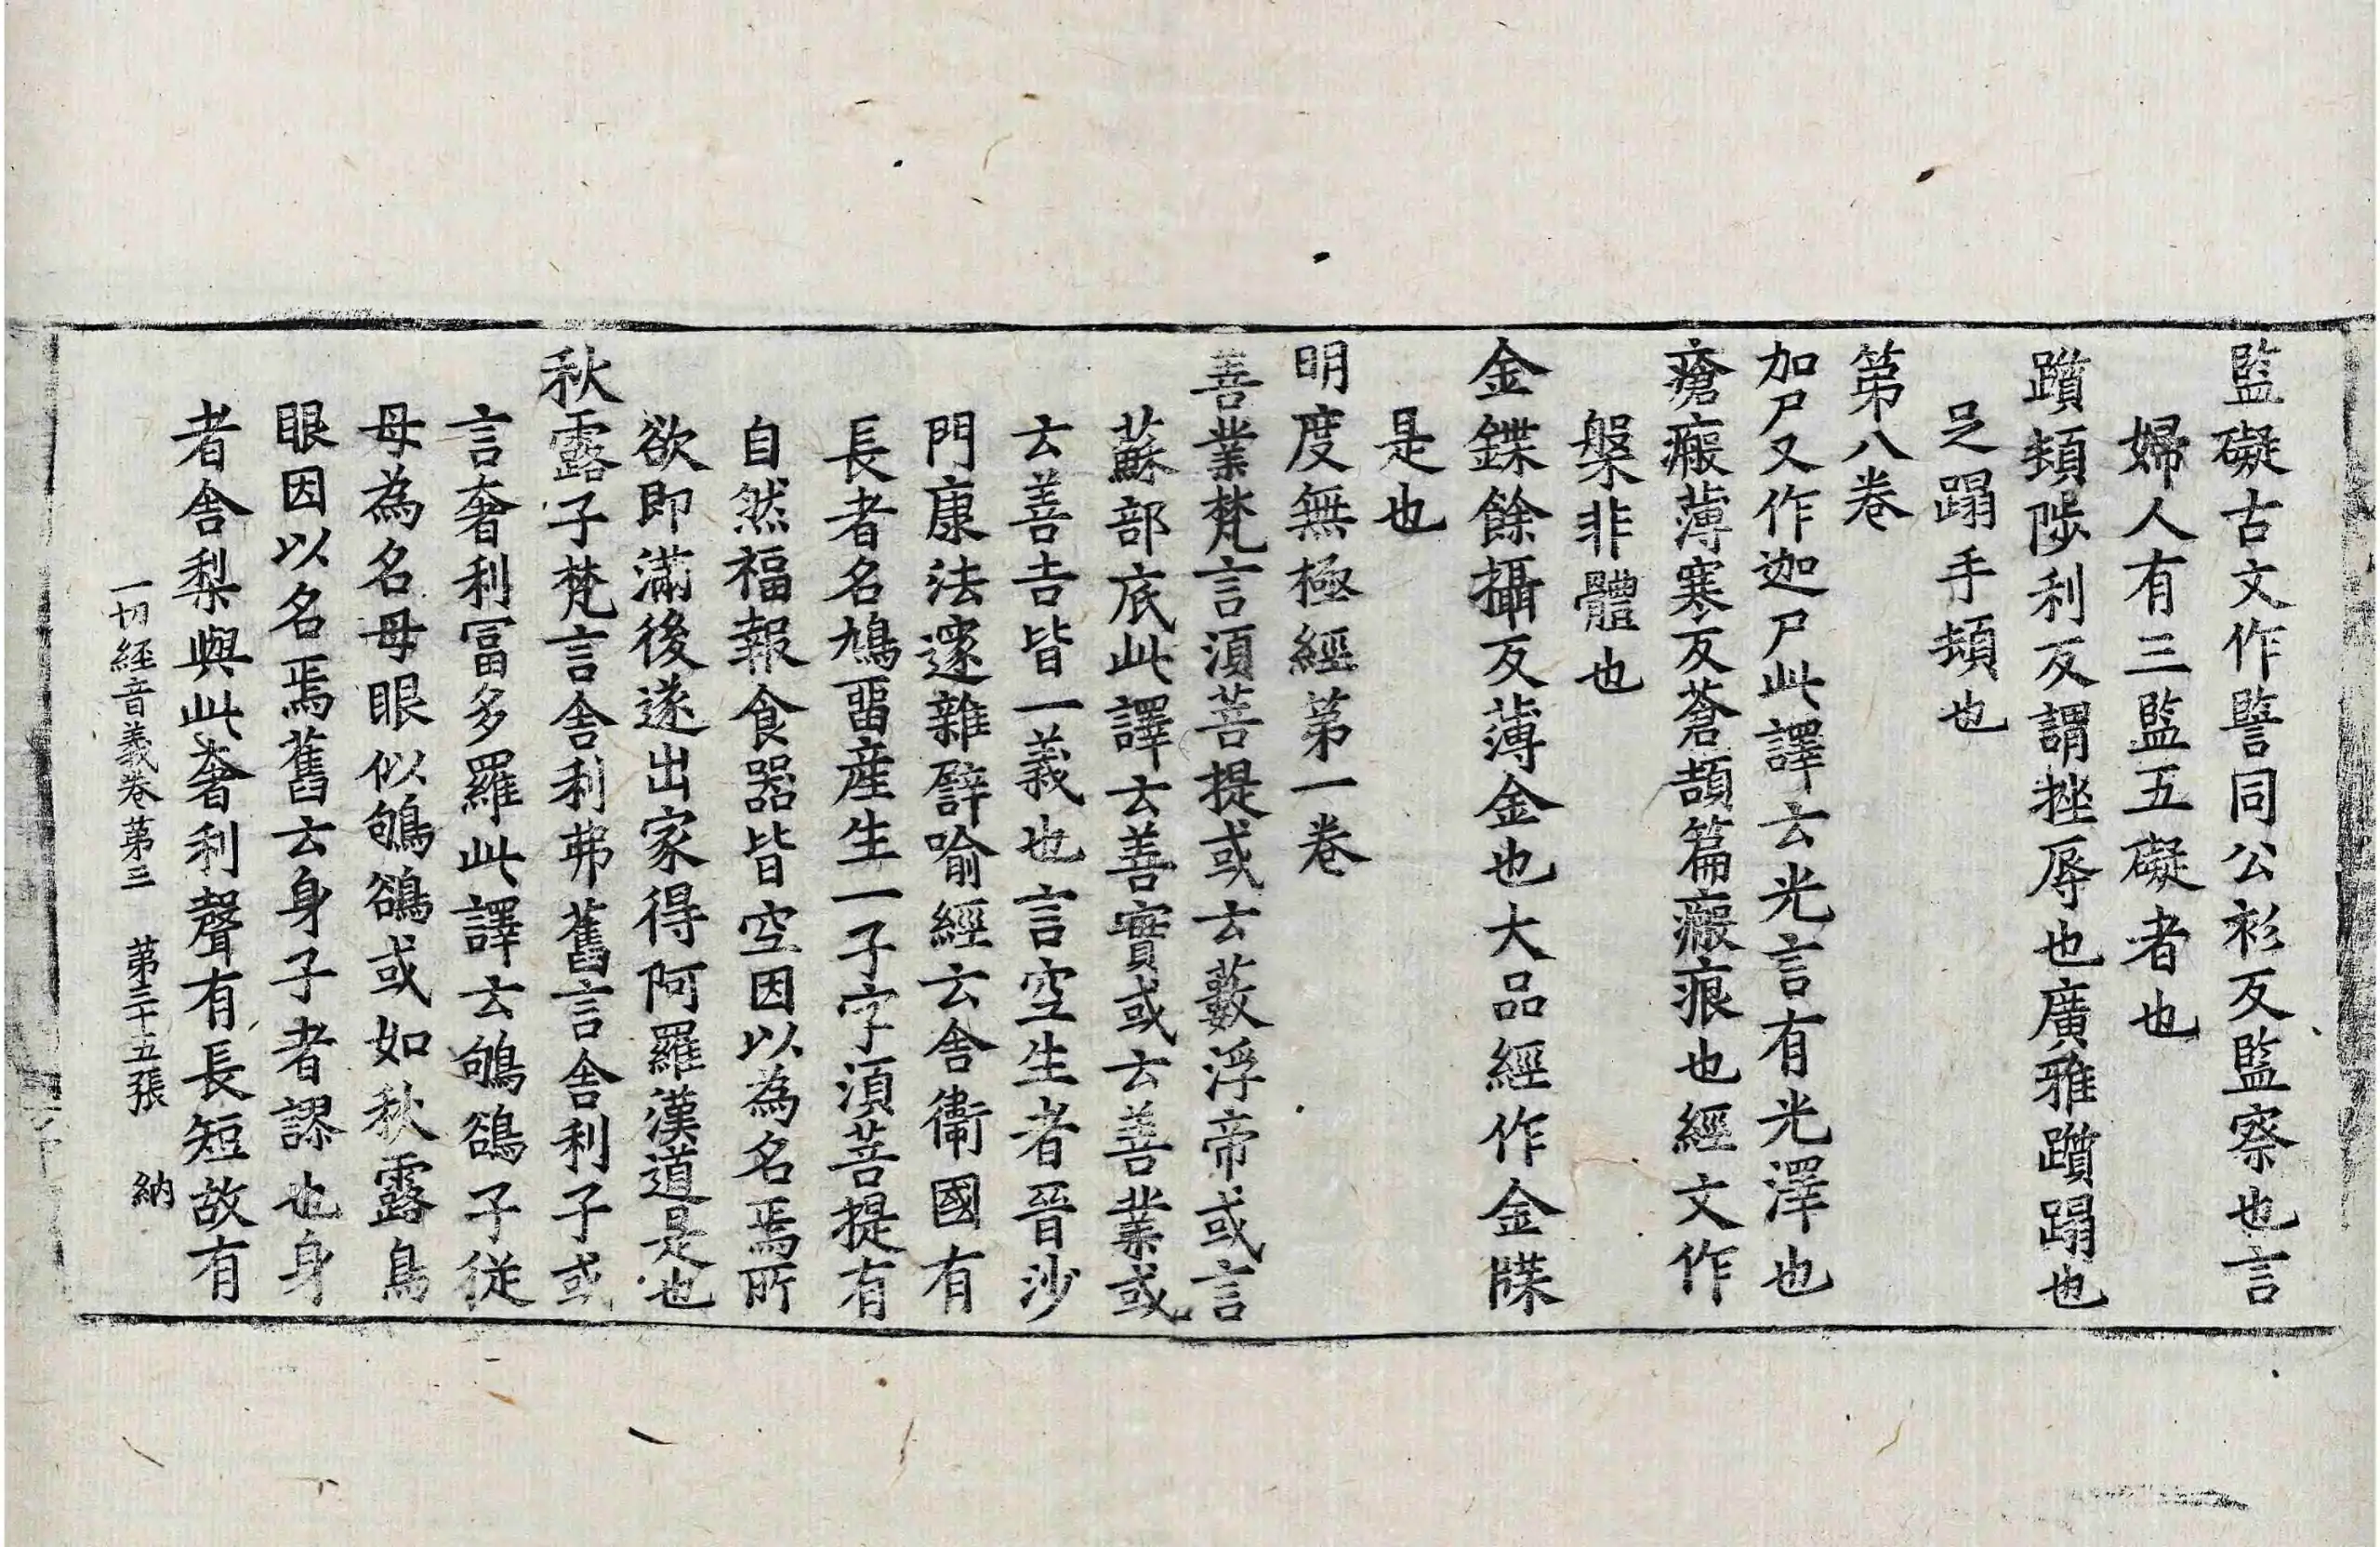 監礙古文作譼同公衫反監察也言
婦人有三監五礙者也
躓頓陟利反謂挫辱也廣雅躓蹋也
足蹋手頓也
第八卷
加尸又作迦尸此譯云光言有光澤也
瘡瘢薄寒反蒼頡篇瘢痕也經文作
槃非體也
金鍱餘攝反薄金也大品經作金牒
是也
明度無極經第一卷
善業梵言湏菩提或云藪浮帝或言
蘇部底此譯云善實或云善業或
云善吉皆一義也言空生者晉沙
門康法邃雜譬喻經云舍衛國有
長者名鳩留產生一子字湏菩提有
自然福報食器皆空因以為名焉所
欲即滿後遂出家得阿羅漢道是也
秋露子梵言舍利弗舊言舍利子或
言奢利富多羅此譯云鴝鵒子從
母為名母眼似鴝鵒或如秋露鳥
眼因以名焉舊云身子者謬也身
者舍梨與此奢利聲有長短故有
一切經音義卷第三 第三十五張 納